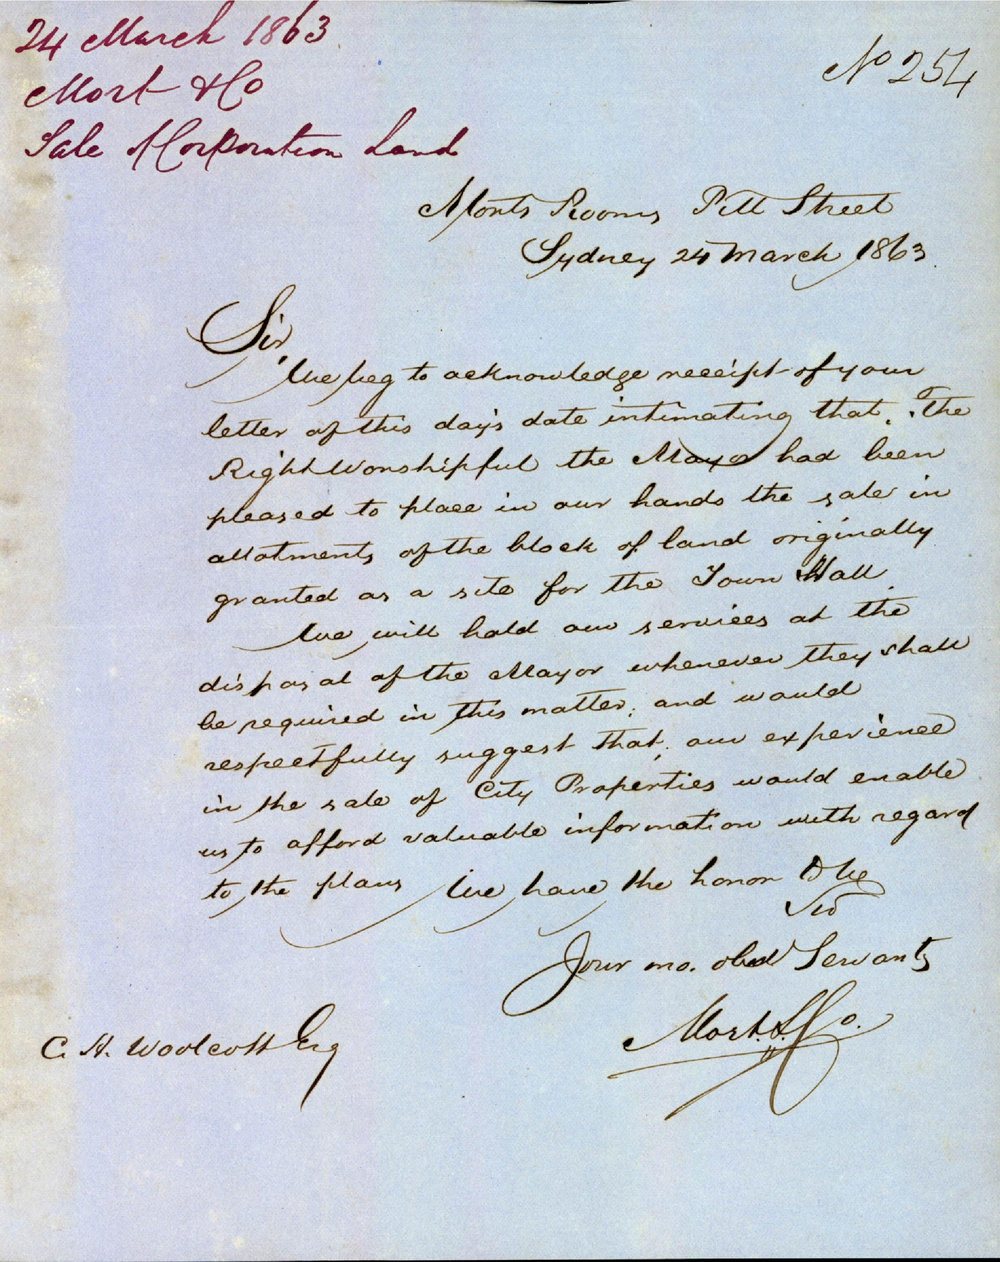 24 March 1863
Mort & Co
Sale Corporation Land
No 254
Morts Rooms Pitt Street
Sydney 24 March 1863
Sir
We beg to acknowledge receipt of your
letter of this day's date intimating that. The
Right Worshipful the Mayor had been
pleased to place in our hands the sale in
allotments of the block of land originally
granted as a site for the Town Hall.
We will hold our services at the
disposal of the Mayor whenever they shall
be required in this matter; and would
respectfully suggest that, our experience
in the sale of City Properties would enable
us to afford valuable information with regard
to the plans We have the honor to be
Sir
Your mo. obedt Servants
Mort & Co.
C. H. Woolcott Esq